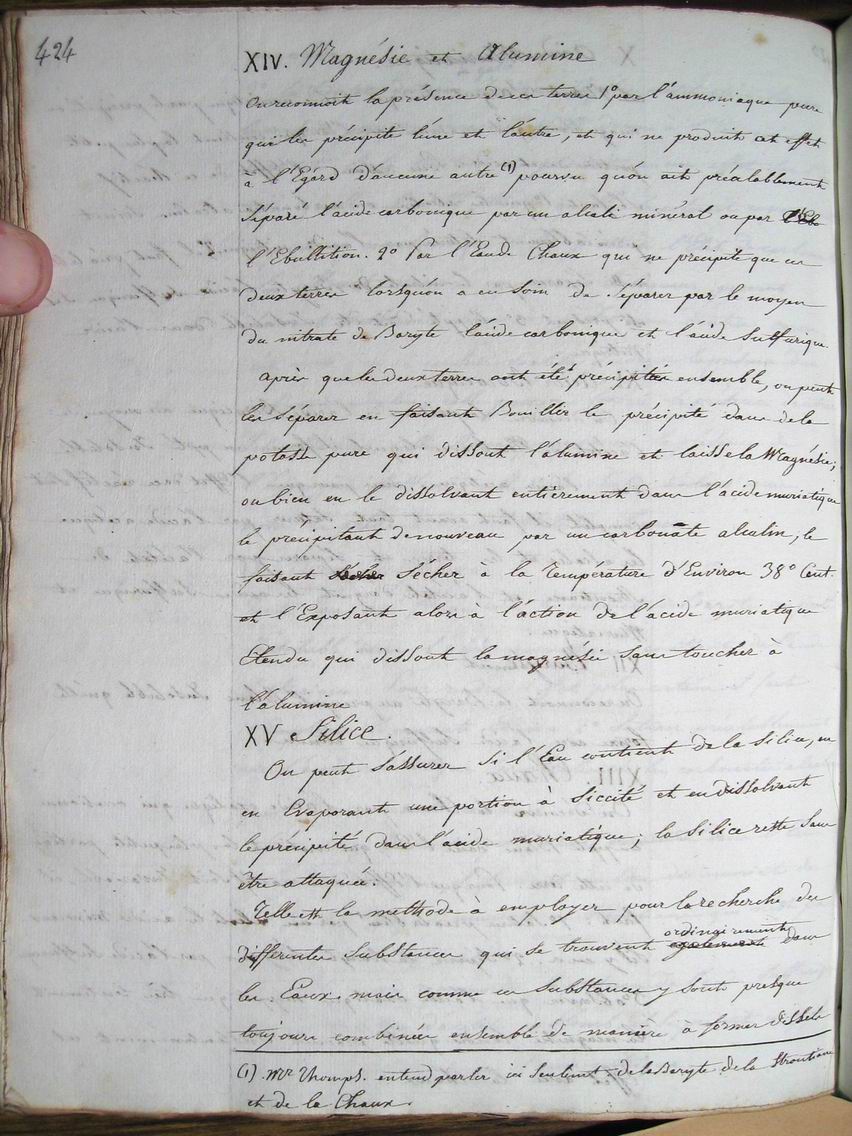 424
XIV. Magnésie et Alumine
On reconnoit la présence de ces terres 1° par l'ammoniaque pure
qui les précipite l'une et l'autre, et qui ne produit cet effet
à l'Egard d'aucune autre (1) pourvu qu'on ait préalablement
séparé l'acide carbonique par un alcali minéral ou par
l'Ebullition. 2° Par l'Eau de Chaux qui ne précipite que ces
deux terres lorsqu'on a eu soin de séparer par le moyen
du nitrate de Baryte l'acide carbonique et l'acide sulfurique.
après que les deux terres ont été précipitées ensemble, on peut
les séparer en faisant Bouillir le précipité dans de la
potasse pure qui dissout l'alumine et laisse la Magnésie;
ou bien en le dissolvant entièrement dans l'acide muriatique
le précipitant de nouveau par un carbonate alcalin, le
faisant sécher à la Température d'Environ 38° Cent.
et l'Exposant alors à l'action de l'acide muriatique
Etendu qui dissout la magnésie sans toucher à
l'alumine
XV Silice.
On peut s'assurer si l'Eau contient de la silice, en
en Evaporant une portion à siccité et en dissolvant
le précipité dans l'acide muriatique; la silice reste sans
être attaquée.
Telle est la méthode à employer pour la recherche des
ordinairement
différentes substances qui se trouvent egalement dans
les Eaux. mais comme ces substances y sont presque
toujours combinées ensemble de manière à former des Sels
(1). Mr Thomps. entend parler ici seulement de la Baryte de la Strontiane
et de la Chaux.